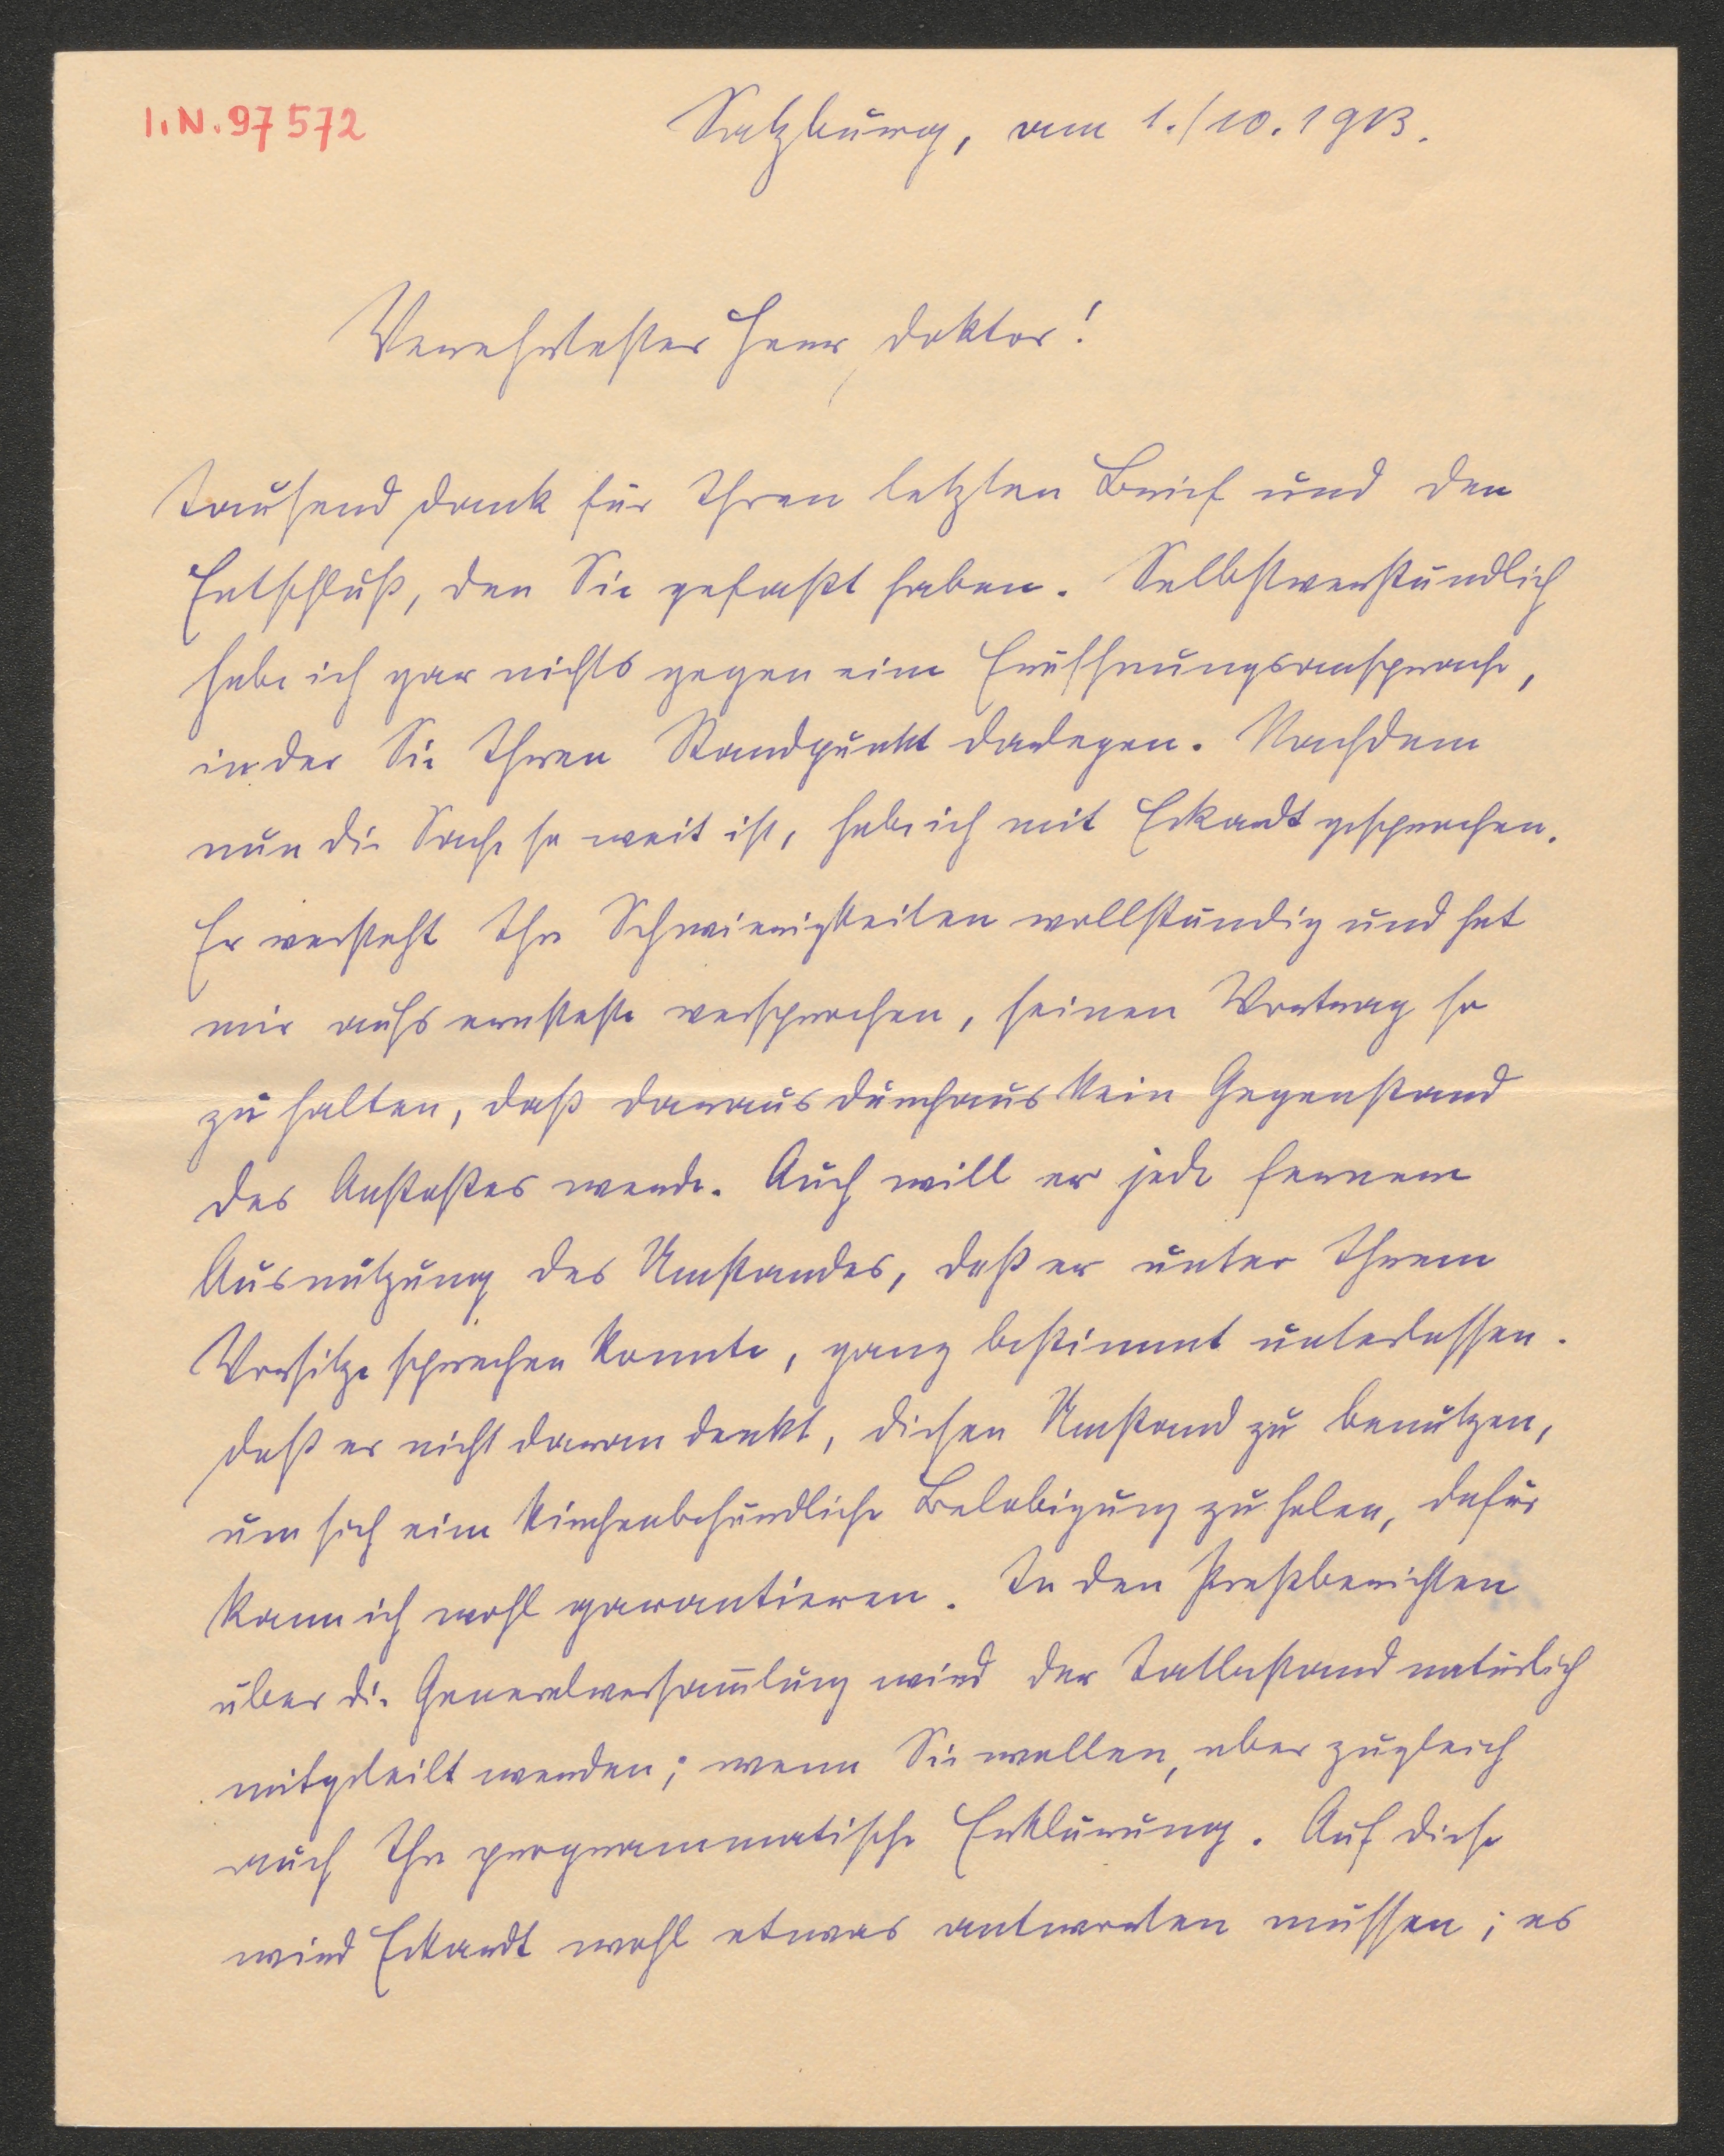 I.N. 97572
Salzburg, am 1./10. 1913.
Verehrtester Herr Doktor!
Tausend Dank für Ihren letzten Brief und den
Entschluß, den Sie gefaßt haben. Selbstverständlich
habe ich gar nichts gegen eine Eröffnungsansprache,
in der Sie Ihren Standpunkt darlegen. Nachdem
nun die Sache so weit ist, habe ich mit Eckardt gesprochen.
Er versteht Ihre Schwierigkeiten vollständig und hat
mir aufs ernsteste versprochen, seinen Vortrag so
zu halten, daß daraus durchaus kein Gegenstand
des Anstoßes werde. Auch will er jede fernere
Ausnützung des Umstandes, daß er unter Ihrem
Vorsitze sprechen konnte, ganz bestimmt unterlassen.
Daß er nicht daran denkt, diesen Umstand zu benützen,
um sich eine kirchenbehördliche Belobigung zu holen, dafür
kann ich wohl garantieren. In den Preßberichten
über die Generalversam̅lung wird der Tatbestand natürlich
mitgeteilt werden; wenn Sie wollen, aber zugleich
auch Ihre programmatische Erklärung. Auf diese
wird Eckardt wohl etwas antworten müssen; es